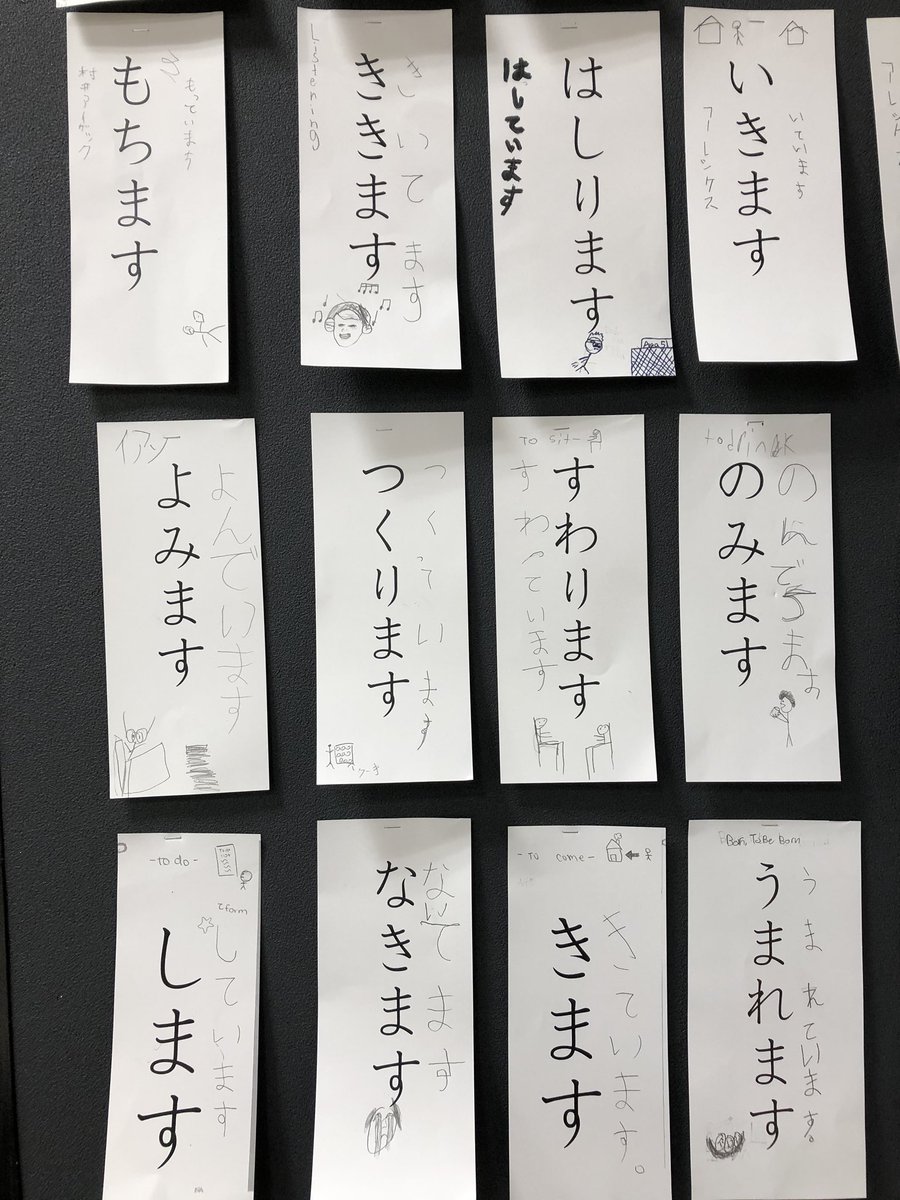 もちます
もっています
村井アーチック
ききます
きいてます
Listening
はしります
はしています
Area 51
いきます
いています
フーレックス
イアン
よみます
よんでいます
つくります
つくっています
ケーキ
To sit-
すわります
すわっています
to drink
のみます
-To do-
To Do
てform
します
しています
なきます
ないてます
-To come-
きます
きています。
Born To Be Born
うまれます
うまれています。